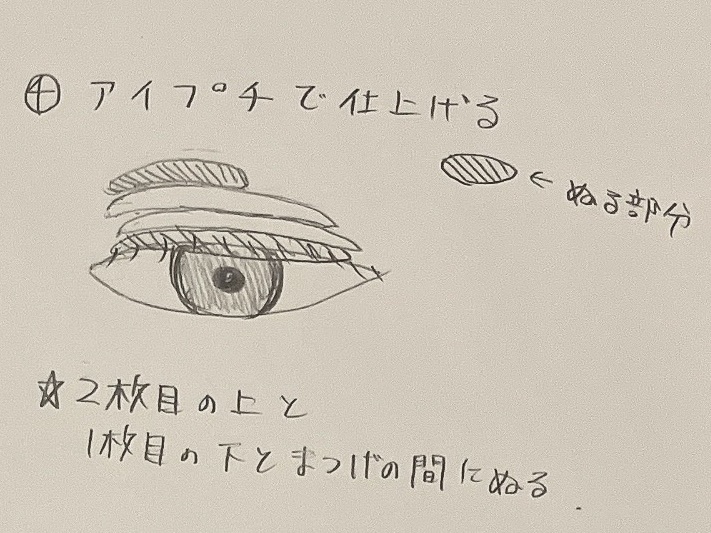 ④ アイプチで仕上げる
← ぬる部分
☆2枚目の上と
1枚目の下とまつげの間にぬる